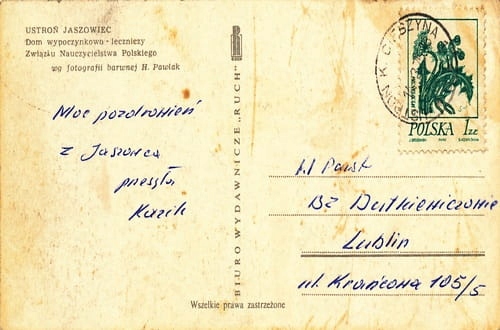 USTROŃ JASZOWIEC
Dom wypoczynkowo-leczniczy
Związku Nauczycielstwa Polskiego
wg fotografii barwnej H. Pawlak
Moc pozdrowień
z Jaszowca
przesyła
Kazik
BIURO WYDAWNICZE „RUCH"
Wszelkie prawa zastrzeżone
USTROŃ K. CIESZYNA
POLSKA 1 ZŁ
W Państ
BZ Dutkiewiczowie
Lublin
ul. Krańcowa 105/5